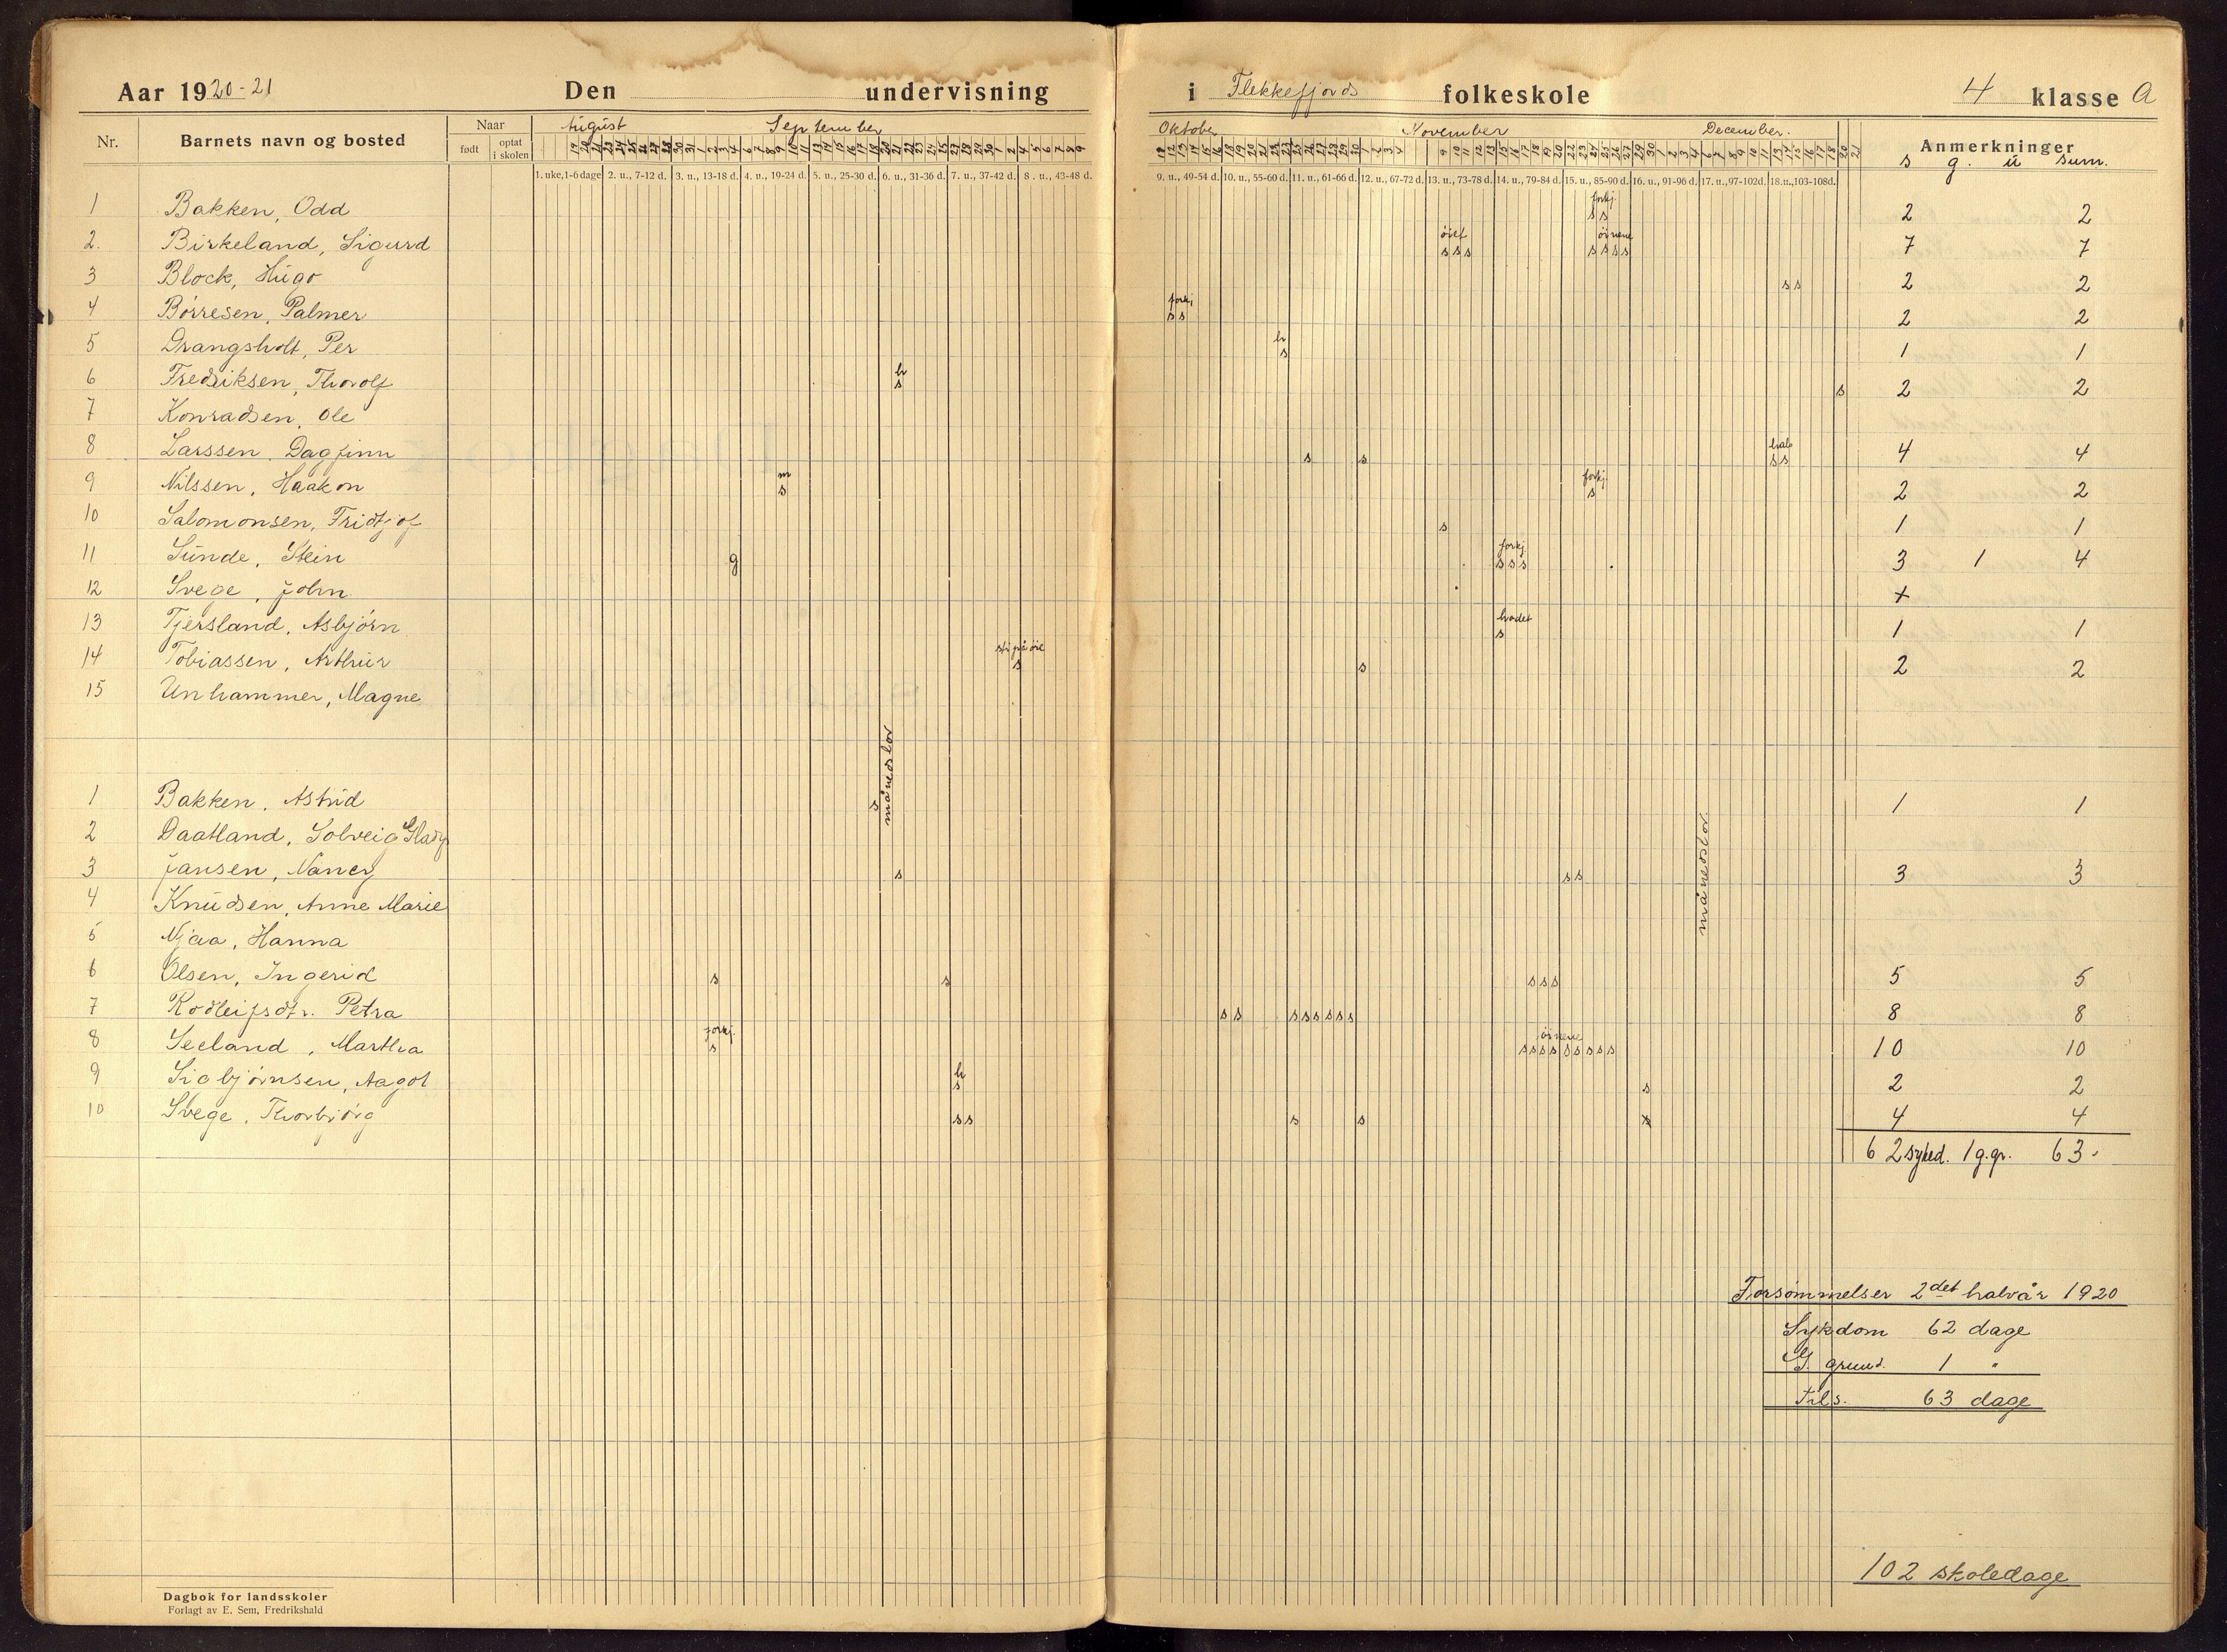 Aar 1920-21 Den undervisning i Flekkefjords folkeskole 4 klasse A
Nr. Barnets navn og bosted Naar født optat i skolen August September Oktober November December. Anmerkninger
s g. u sum.
1. uke, 1-6 dage 2. u., 7-12 d. 3. u., 13-18 d. 4. u., 19-24 d. 5. u., 25-30 d. 6. u., 31-36 d. 7. u., 37-42 d. 8. u., 43-48 d. 9. u., 49-54 d. 10. u., 55-60 d. 11. u., 61-66 d. 12. u., 67-72 d. 13. u., 73-78 d. 14. u., 79-84 d. 15. u., 85-90 d. 16. u., 91-96 d. 17. u., 97-102d. 18.u.,103-108d.
1 Bakken, Odd forkj. s s 2 2
2. Birkeland, Sigurd øiet s s s øinene s s s s 7 7
3 Block, Hugo s s 2 2
4 Børresen, Palmer forkj s s 2 2
5 Drangsholt, Per h s 1 1
6 Fredriksen, Thorolf h s s 2 2
7 Konradsen, Ole
8 Larssen, Dagfinn s s hals s s 4 4
9 Nilssen, Haakon m s forkj. s 2 2
10 Salomonsen, Fridtjof s 1 1
11 Sunde, Stein g forkj. s s s 3 1 4
12 Svege, John +
13 Tjersland, Asbjørn hodet s 1 1
14 Tobiassen, Arthur sti på øie s s 2 2
15 Unhammer, Magne
månedslov
1 Bakken, Astrid s 1 1
2 Daatland, Solveig Gladys
månedslov
3 Jansen, Nancy s s s 3 3
4 Knudsen, Anne Marie
5 Njaa, Hanna
6 Olsen, Ingerid s s s s s 5 5
7 Rodleifsdtr. Petra s s s s s s s s 8 8
8 Seeland, Martha forkj. s øinene s s s s s s s s s 10 10
9 Sigbjørnsen, Aagot h s s 2 2
10 Svege, Thorbjørg s s s s 4 4
62 sykd. 1 g.gr. 63.
Forsømmelser 2det halvår 1920
Sykdom 62 dage
G. grund. 1 "
Tils. 63 dage
102 skoledage
Dagbok for landsskoler
Forlagt av E. Sem, Fredrikshald